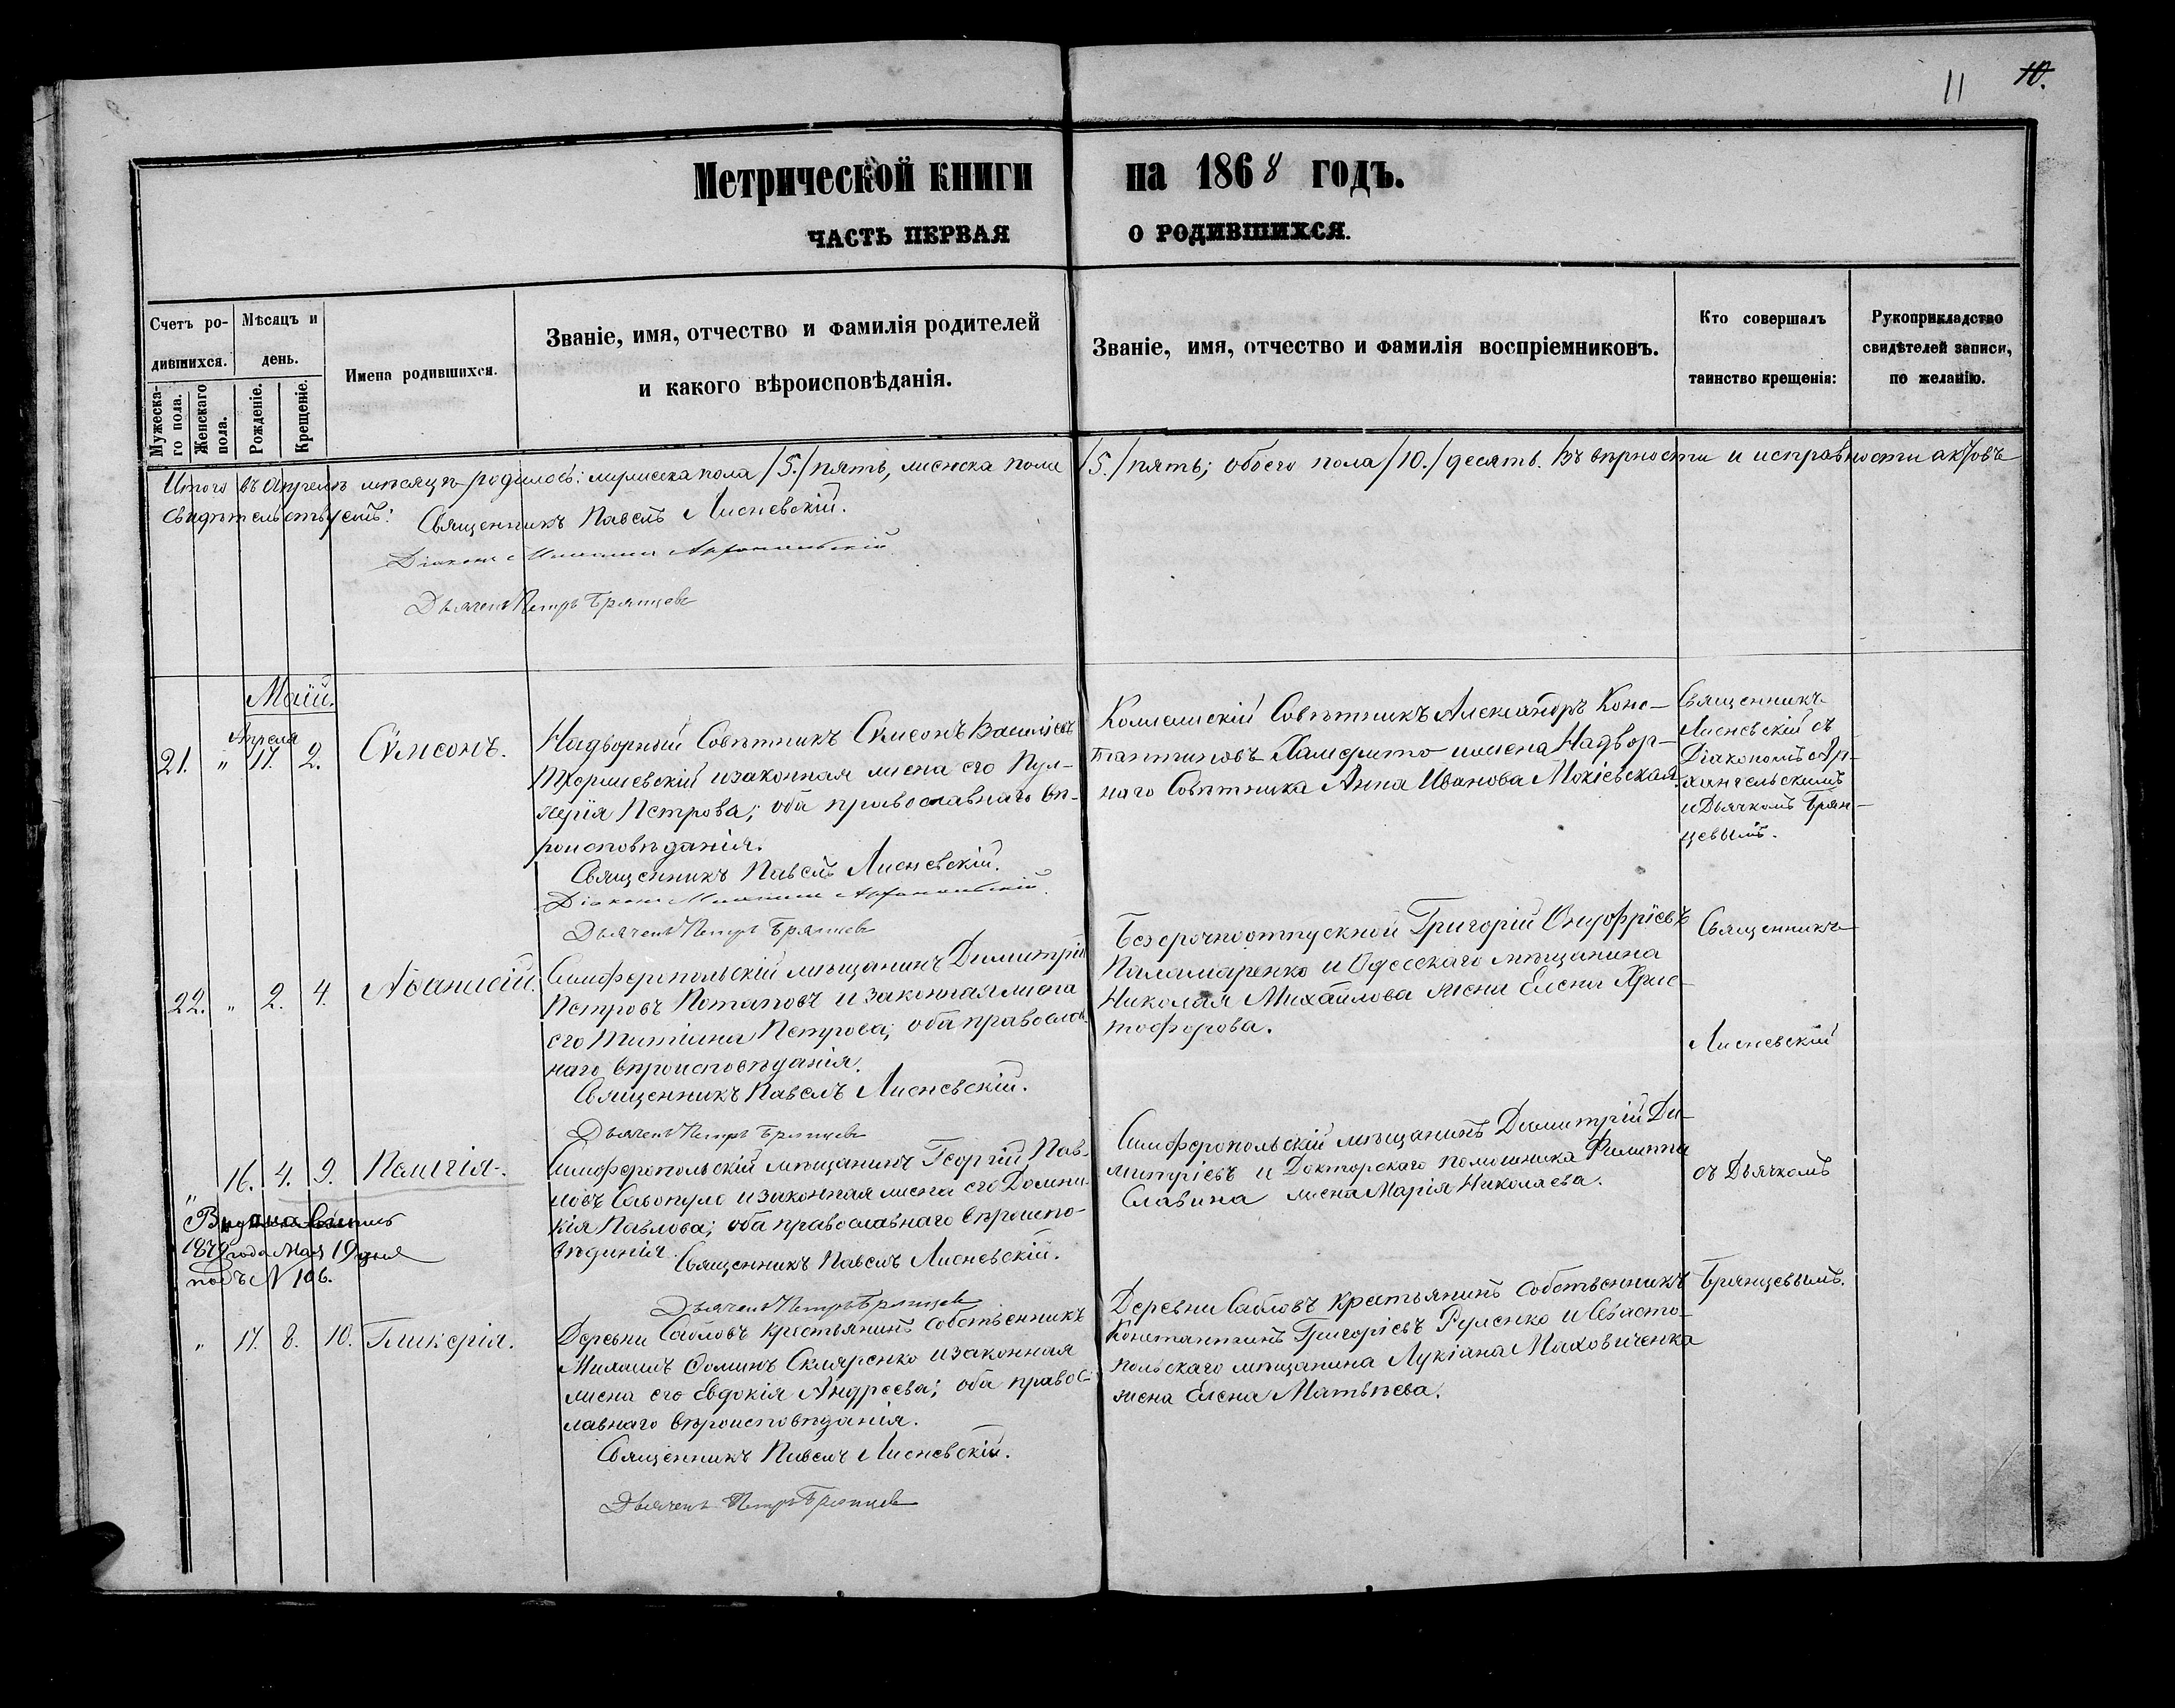 11 10.
Метрической книги на 1868 годъ.
ЧАСТЬ ПЕРВАЯ О РОДИВШИХСЯ.
Счетъ ро-
дившихся.
Мѣсяцъ и
день.
Мужеска-
го пола.
Женскаго
пола.
Рожденіе.
Крещеніе.
Имена родившихся.
Званіе, имя, отчество и фамилія родителей
и какого вѣроисповѣданія.
Званіе, имя, отчество и фамилія воспріемниковъ.
Кто совершалъ
таинство крещенія:
Рукоприкладство
свидѣтелей записи,
по желанію.
Итого въ Апрелѣ мѣсяцѣ родилось: мужеска пола /5./ пять, женска пола /5./ пять; обоего пола /10./ десять. Въ вѣрности и исправности актовъ
свидѣтельствуемъ:
Священникъ Павелъ Лисневскій.
Діаконъ Архангельскій
Дьячекъ Петръ Брянцевъ
Маій.
Апреля
21. " 17. 2. Сѵмеонъ.
Надворный Совѣтникъ Сѵмеонъ Василіевъ
изаконная жена его Пул-
херія Петрова; оба православнаго вѣ-
роисповѣданія.
Священникъ Павелъ Лисневскій.
Діаконъ Архангельскій.
Дьячекъ Петръ Брянцевъ
Коллежскій Совѣтникъ Александръ Конс-
тантиновъ ижена Надвор-
наго Совѣтника Анна Иванова Мокіевская.
Священникъ
Лисневскій съ
Діакономъ Ар-
хангельскимъ
и Дьячкомъ Брян-
цевымъ.
22. " 2. 4. Аѳанасій.
Симферопольскій мѣщанинъ Димитрій
Петровъ Потаповъ и законная жена
его Татіана Петрова; оба православ-
наго вѣроисповѣданія.
Священникъ Павелъ Лисневскій.
Дьячекъ Петръ Брянцевъ
Безсрочноотпускной Григорій Онуфріевъ
Паламаренко и Одесскаго мѣщанина
Николая Михайлова жена Елена Хрис-
тофорова.
Священникъ
Лисневскій
" 16. 4. 9. Пелагія.
Симферопольскій мѣщанинъ Георгій Пав-
ловъ Савопуло изаконная жена его Домни-
кія Павлова; оба православнаго вѣроиспо-
вѣданія.
Священникъ Павелъ Лисневскій.
Дьячекъ Петръ Брянцевъ
Симферопольскій мѣщанинъ Димитрій Ди-
митріевъ и Докторскаго помощника Филиппа
Славина жена Марія Николаева.
съ Дьячкомъ
Выдана
1879 года Мая 19 дня
подъ N 106.
" 17. 8. 10. Гликерія.
Деревни Сабловъ крестьянинъ собственникъ
Ѳоминъ Скляренко изаконная
жена его Евдокія Андреева; оба правос-
лавнаго вѣроисповѣданія.
Священникъ Павелъ Лисневскій.
Дьячекъ Петръ Брянцевъ
Деревни Сабловъ крестьянинъ собственникъ
Константинъ Григоріевъ Руленко и Севасто-
польскаго мѣщанина Лукіана Маховиченка
жена Елена Матвѣева.
Брянцевымъ.